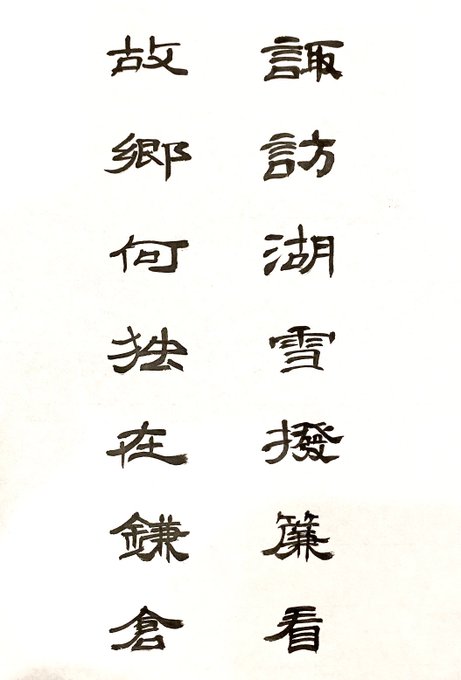 諏訪湖雪撥簾看
故郷何独在鎌倉